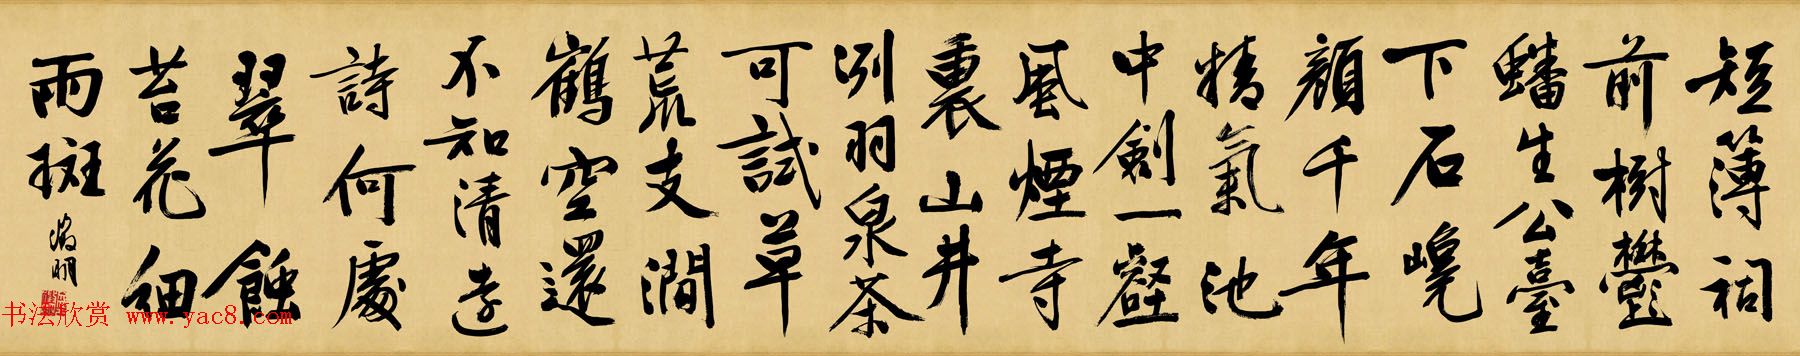 短簿祠
前樹鬱
蟠生公臺
下石
顏千年
精氣池
中劍一壑
風煙寺
裏山井
洌羽泉茶
可試草
荒支澗
鶴空還
不知清遠
詩何處
翠蝕
苔花細
雨斑
徵明
书法欣赏 www.yac8.com